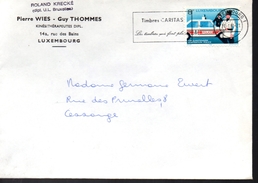 ROLAND KRECKÉ
(dipl. U.L. Bruxelles)
Pierre WIES - Guy THOMMES
KINÉSITHÉRAPEUTES DIPL.
14a, rue des Bains
LUXEMBOURG
Timbres CARITAS
Madame Germaine Ewert
Rue des Prunelles, 8
Cessange